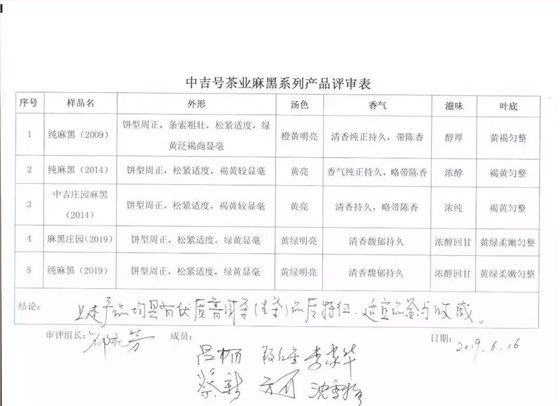 中吉号茶业麻黑系列产品评审表
序号 样品名 外形 汤色 香气 滋味 叶底
1 纯麻黑（2009） 饼型周正，条索粗壮，松紧适度，绿黄泛褐尚显毫 橙黄明亮 清香纯正持久，带陈香 醇厚 黄褐匀整
2 纯麻黑（2014） 饼型周正，松紧适度，褐黄较显毫 黄亮 香气纯正持久，略带陈香 浓醇 褐黄匀整
3 中吉庄园麻黑（2014） 饼型周正，松紧适度，褐黄较显毫 黄亮 清香持久，略带陈香 浓纯 褐黄匀整
4 麻黑庄园（2019） 饼型周正，松紧适度，绿黄显毫 黄绿明亮 清香馥郁持久 浓醇回甘 黄绿柔嫩匀整
5 纯麻黑（2019） 饼型周正，松紧适度，绿黄显毫 黄绿明亮 清香馥郁持久 浓醇回甘 黄绿柔嫩匀整
结论：
上述产品均具有优质普洱茶（生茶）品质特征，适宜品鉴与收藏。
审评组长： 成员： 日期：2019.6.16
蔡新